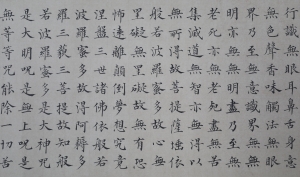 行識無眼耳鼻舌身意
無色聲香味觸法無眼
界乃至無意識界無無
明亦無無明盡乃至無
老死亦無老死盡無苦
集滅道無智亦無得以
無所得故菩提薩埵依
般若波羅蜜多故心無
罣礙無罣礙故無有恐
怖遠離顛倒夢想究竟
涅槃三世諸佛依般若
波羅蜜多故得阿耨多
羅三藐三菩提故知般
若波羅蜜多是大神咒
是大明咒是無上咒是
無等等咒能除一切苦